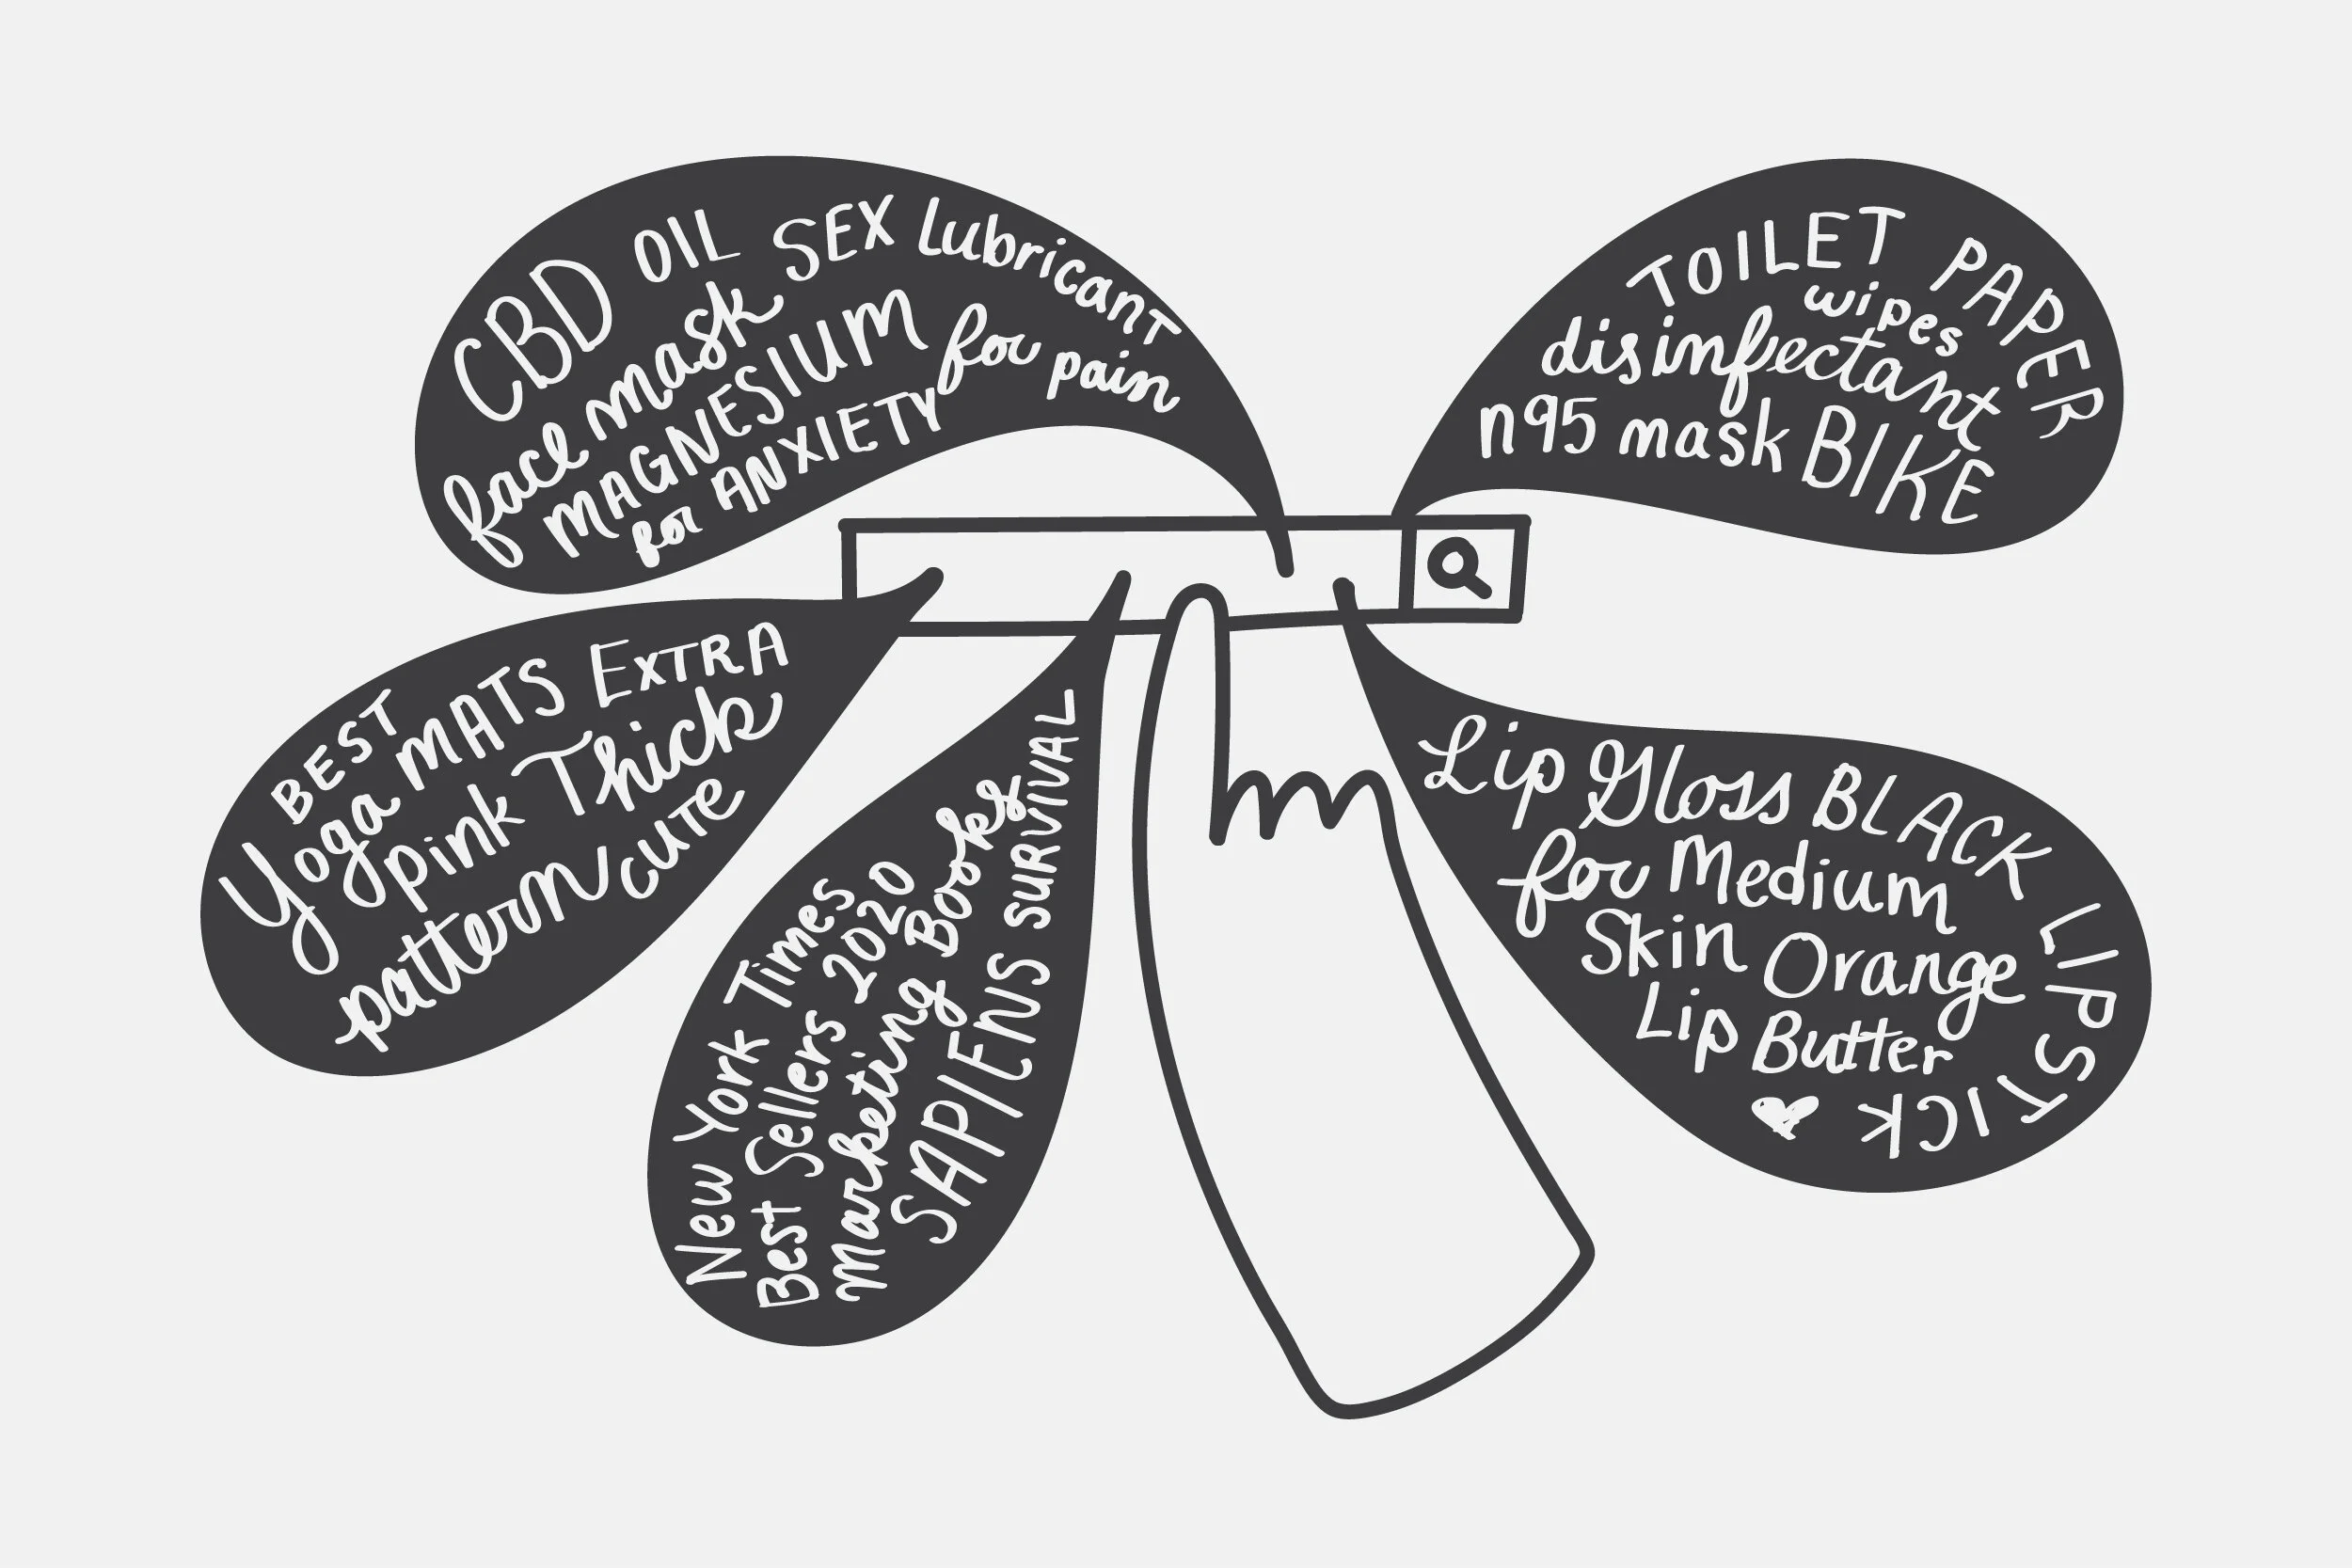 CBD OIL SEX Lubricant
face mask
MAGNESIUM for pain
ANXIETY
TOILET PAPER
wipes
disinfectant
n95 mask BIKE
BEST
Yoga MATS EXTRA
pink Thick
pattern cute
New York Times
Best Sellers 2020
marketing books
SAPIENS survival
Lip Gloss BLACK LIPSTICK
for Medium
Skin Orange
Lip Butter